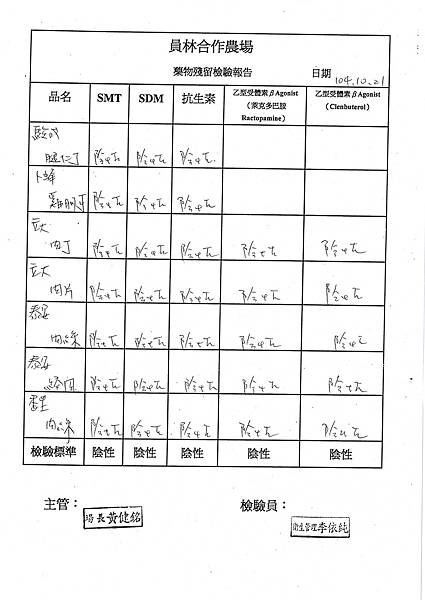 員林合作農場
藥物殘留檢驗報告
日期 104.10.21
品名 SMT SDM 抗生素 乙型受體素βAgonist (萊克多巴胺 Ractopamine) 乙型受體素βAgonist (Clenbuterol)
陰性 陰性 陰性
卜蜂
雞胸丁 陰性 陰性 陰性
立大
肉丁 陰性 陰性 陰性 陰性 陰性
立大
肉片 陰性 陰性 陰性 陰性 陰性
泰安
肉絲 陰性 陰性 陰性 陰性 陰性
泰安
絞肉 陰性 陰性 陰性 陰性 陰性
肉絲 陰性 陰性 陰性 陰性 陰性
檢驗標準 陰性 陰性 陰性 陰性 陰性
主管： 檢驗員：
場長黃健銘 衛生管理李依純